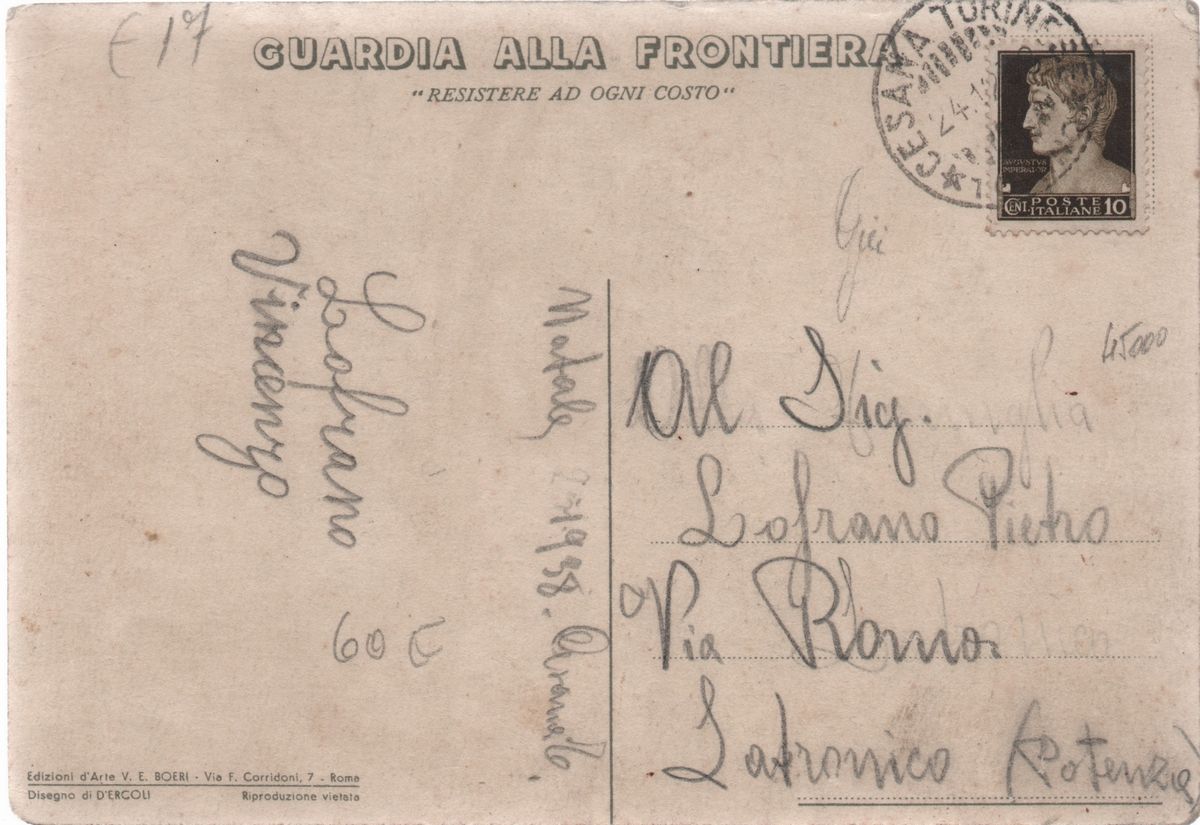 E 17
GUARDIA ALLA FRONTIERA
"RESISTERE AD OGNI COSTO"
CESANA TORINESE
24.1
AVGVSTVS
IMPERATOR
CENT. POSTE ITALIANE 10
45000
Al Sig.
Lofrano Pietro
Via Roma
Latronico (Potenza)
Natale 1938.
Lofrano
Vincenzo
60
Edizioni d'Arte V. E. BOERI - Via F. Corridoni, 7 - Roma
Disegno di D'ERCOLI Riproduzione vietata